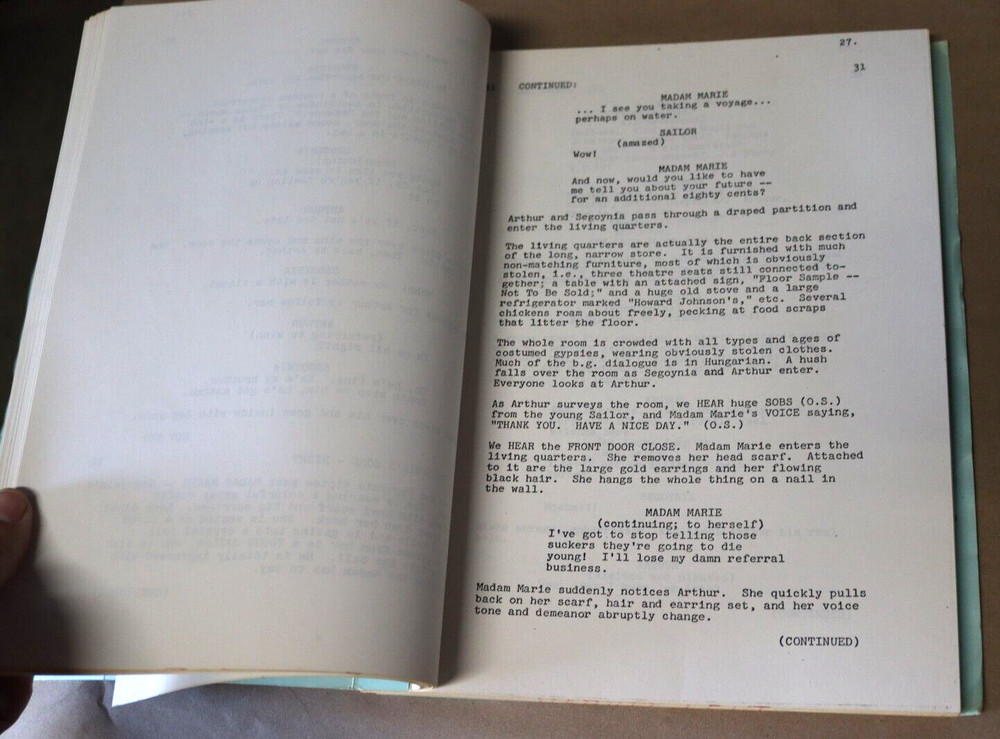 27.
31
CONTINUED:
MADAM MARIE
... I see you taking a voyage...
perhaps on water.
SAILOR
(amazed)
Wow!
MADAM MARIE
And now, would you like to have
me tell you about your future --
for an additional eighty cents?
Arthur and Segoynia pass through a draped partition and
enter the living quarters.
The living quarters are actually the entire back section
of the long, narrow store. It is furnished with much
non-matching furniture, most of which is obviously
stolen, i.e., three theatre seats still connected to-
gether; a table with an attached sign, "Floor Sample --
Not To Be Sold;" and a huge old stove and a large
refrigerator marked "Howard Johnson's," etc. Several
chickens roam about freely, pecking at food scraps
that litter the floor.
The whole room is crowded with all types and ages of
costumed gypsies, wearing obviously stolen clothes.
Much of the b.g. dialogue is in Hungarian. A hush
falls over the room as Segoynia and Arthur enter.
Everyone looks at Arthur.
As Arthur surveys the room, we HEAR huge SOBS (O.S.)
from the young Sailor, and Madam Marie's VOICE saying,
"THANK YOU. HAVE A NICE DAY." (O.S.)
We HEAR the FRONT DOOR CLOSE. Madam Marie enters the
living quarters. She removes her head scarf. Attached
to it are the large gold earrings and her flowing
black hair. She hangs the whole thing on a nail in
the wall.
MADAM MARIE
(continuing; to herself)
I've got to stop telling those
suckers they're going to die
young! I'll lose my damn referral
business.
Madam Marie suddenly notices Arthur. She quickly pulls
back on her scarf, hair and earring set, and her voice
tone and demeanor abruptly change.
(CONTINUED)